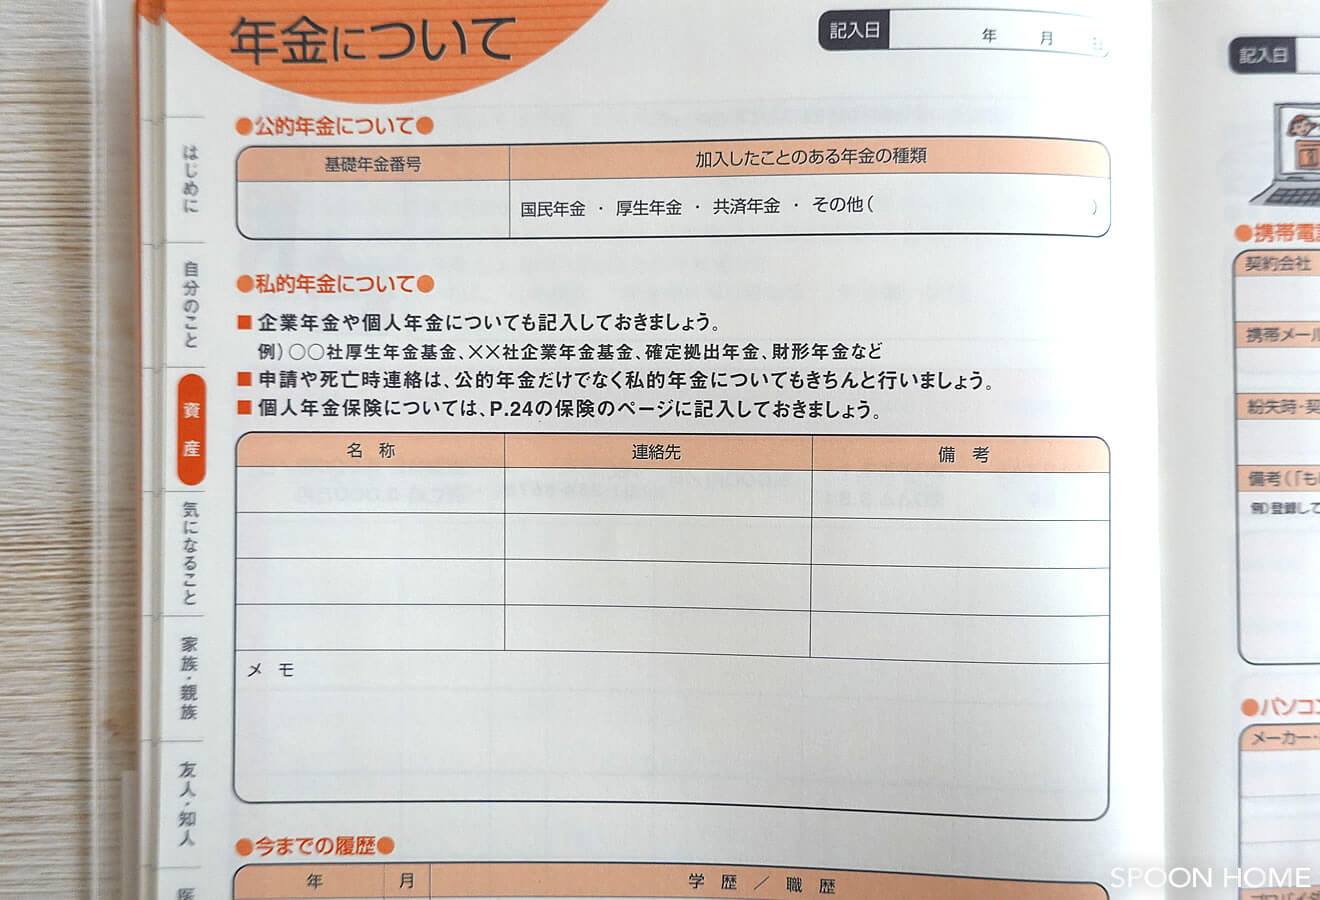 年金について
記入日 年 月 日
●公的年金について●
基礎年金番号 加入したことのある年金の種類
国民年金 ・ 厚生年金 ・ 共済年金 ・ その他( )
●私的年金について●
■ 企業年金や個人年金についても記入しておきましょう。
例)○○社厚生年金基金、××社企業年金基金、確定拠出年金、財形年金など
■ 申請や死亡時連絡は、公的年金だけでなく私的年金についてもきちんと行いましょう。
■ 個人年金保険については、P.24の保険のページに記入しておきましょう。
名 称 連絡先 備 考
メ モ
●今までの履歴●
年 月 学 歴 / 職 歴
はじめに
自分のこと
資 産
気になること
家族・親族
友人・知人
医
記入日
●携帯電話
契約会社
携帯メール
紛失時・契
備考(「も
例)登録して
●パソコン
メーカー・
SPOON HOME